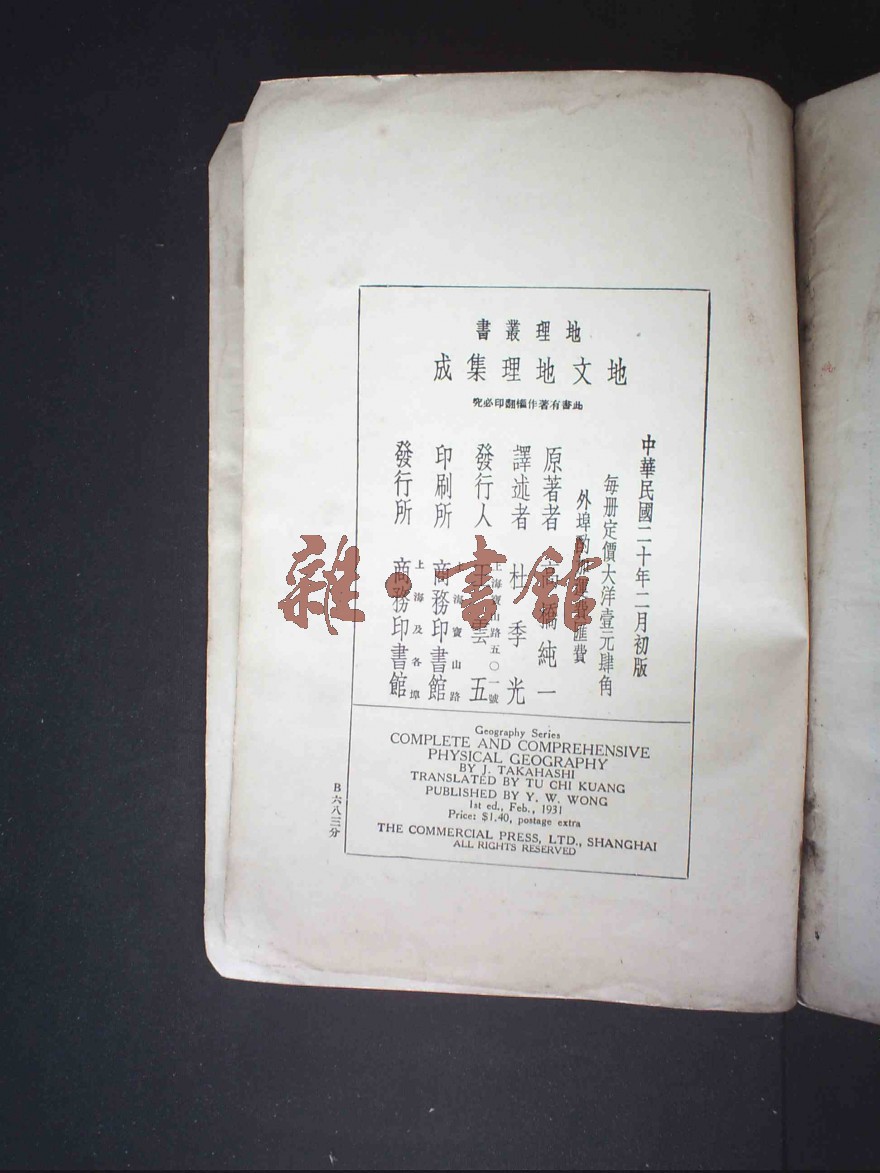 地理叢書
地文地理集成
此書有著作權翻印必究
中華民國二十年二月初版
每冊定價大洋壹元肆角
外埠酌加運費匯費
原著者 高橋純一
譯述者 杜季光
發行人 王雲五
上海寶山路五〇一號
印刷所 商務印書館
上海寶山路
發行所 商務印書館
上海及各埠
Geography Series
COMPLETE AND COMPREHENSIVE
PHYSICAL GEOGRAPHY
BY J. TAKAHASHI
TRANSLATED BY TU CHI KUANG
PUBLISHED BY Y. W. WONG
1st ed., Feb., 1931
Price: $1.40, postage extra
THE COMMERCIAL PRESS, LTD., SHANGHAI
ALL RIGHTS RESERVED
B六八三分
雜·書館